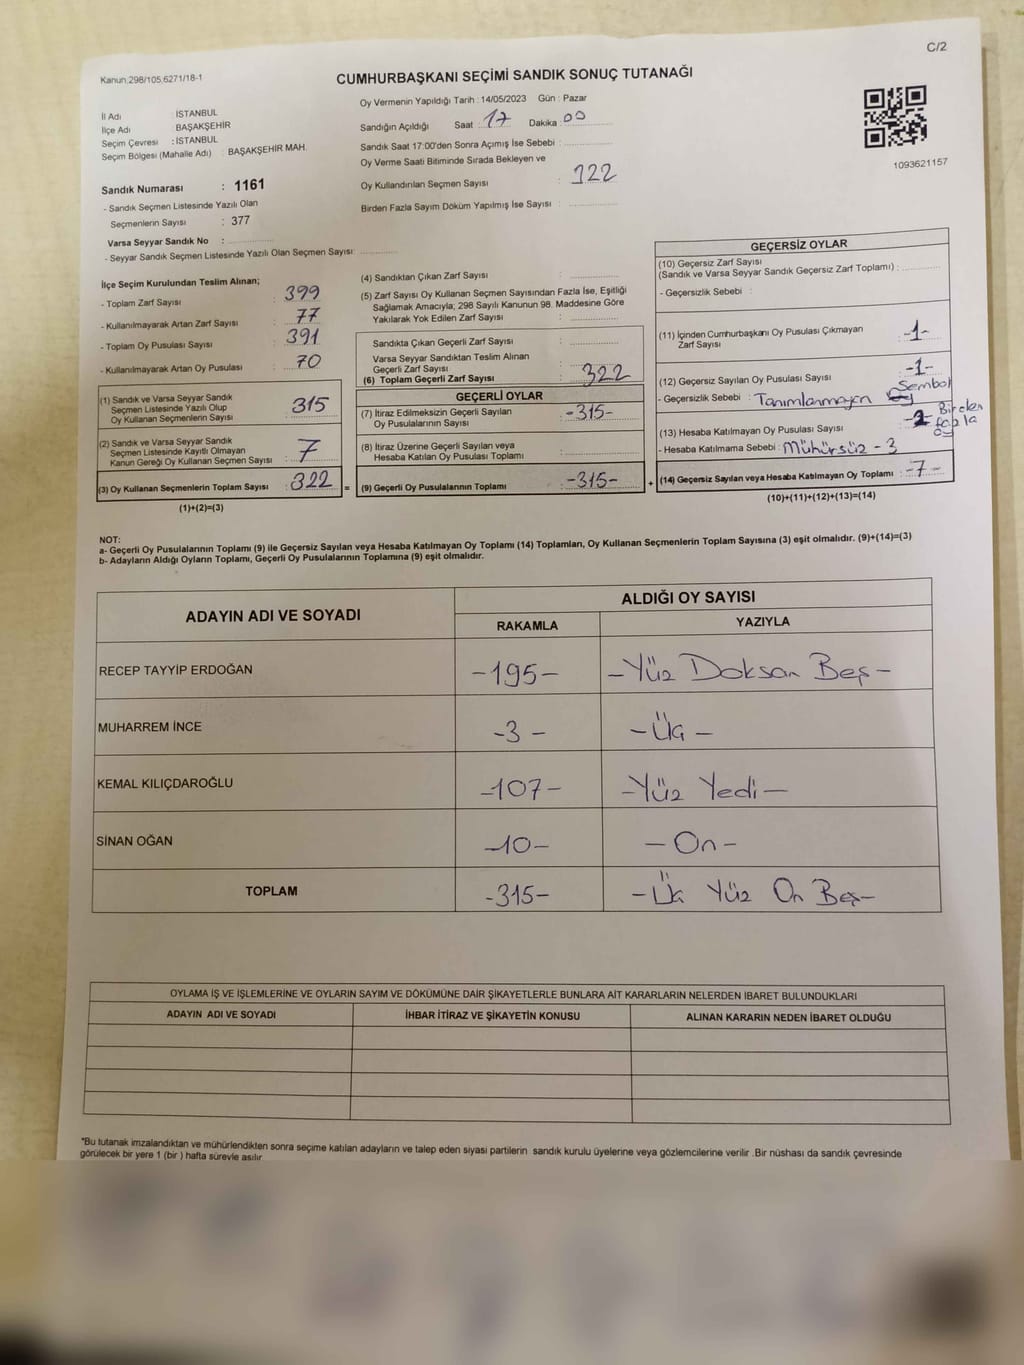 C/2
Kanun.298/105,6271/18-1
CUMHURBAŞKANI SEÇİMİ SANDIK SONUÇ TUTANAĞI
İl Adı : İSTANBUL
İlçe Adı BAŞAKŞEHİR
Seçim Çevresi : İSTANBUL
Seçim Bölgesi (Mahalle Adı) BAŞAKŞEHİR MAH.
Oy Vermenin Yapıldığı Tarih : 14/05/2023 Gün : Pazar
Sandığın Açıldığı Saat : 17 Dakika : 00
Sandık Saat 17:00'den Sonra Açımış İse Sebebi :
Oy Verme Saati Bitiminde Sırada Bekleyen ve
Oy Kullandırılan Seçmen Sayısı : 122
Birden Fazla Sayım Döküm Yapılmış İse Sayısı :
1093621157
Sandık Numarası : 1161
- Sandık Seçmen Listesinde Yazılı Olan
Seçmenlerin Sayısı : 377
Varsa Seyyar Sandık No :
- Seyyar Sandık Seçmen Listesinde Yazılı Olan Seçmen Sayısı :
İlçe Seçim Kurulundan Teslim Alınan;
- Toplam Zarf Sayısı : 399
- Kullanılmayarak Artan Zarf Sayısı : 77
- Toplam Oy Pusulası Sayısı : 391
- Kullanılmayarak Artan Oy Pusulası : 70
(1) Sandık ve Varsa Seyyar Sandık
Seçmen Listesinde Yazılı Olup
Oy Kullanan Seçmenlerin Sayısı : 315
(2) Sandık ve Varsa Seyyar Sandık
Seçmen Listesinde Kayıtlı Olmayan
Kanun Gereği Oy Kullanan Seçmen Sayısı : 7
(3) Oy Kullanan Seçmenlerin Toplam Sayısı : 322 =
(1)+(2)=(3)
(4) Sandıktan Çıkan Zarf Sayısı :
(5) Zarf Sayısı Oy Kullanan Seçmen Sayısından Fazla İse, Eşitliği
Sağlamak Amacıyla; 298 Sayılı Kanunun 98. Maddesine Göre
Yakılarak Yok Edilen Zarf Sayısı :
Sandıkta Çıkan Geçerli Zarf Sayısı :
Varsa Seyyar Sandıktan Teslim Alınan
Geçerli Zarf Sayısı :
(6) Toplam Geçerli Zarf Sayısı : 322
GEÇERLİ OYLAR
(7) İtiraz Edilmeksizin Geçerli Sayılan
Oy Pusulalarının Sayısı : -315-
(8) İtiraz Üzerine Geçerli Sayılan veya
Hesaba Katılan Oy Pusulası Toplamı :
(9) Geçerli Oy Pusulalarının Toplamı : -315- +
GEÇERSİZ OYLAR
(10) Geçersiz Zarf Sayısı
(Sandık ve Varsa Seyyar Sandık Geçersiz Zarf Toplamı) :
- Geçersizlik Sebebi :
(11) İçinden Cumhurbaşkanı Oy Pusulası Çıkmayan
Zarf Sayısı : -1-
(12) Geçersiz Sayılan Oy Pusulası Sayısı : -1-
- Geçersizlik Sebebi : Tanımlanmayan Sembol
(13) Hesaba Katılmayan Oy Pusulası Sayısı : 2 Birden fazla oy
- Hesaba Katılmama Sebebi : Mühürsüz - 3
(14) Geçersiz Sayılan veya Hesaba Katılmayan Oy Toplamı : -7-
(10)+(11)+(12)+(13)=(14)
NOT:
a- Geçerli Oy Pusulalarının Toplamı (9) ile Geçersiz Sayılan veya Hesaba Katılmayan Oy Toplamı (14) Toplamları, Oy Kullanan Seçmenlerin Toplam Sayısına (3) eşit olmalıdır. (9)+(14)=(3)
b- Adayların Aldığı Oyların Toplamı, Geçerli Oy Pusulalarının Toplamına (9) eşit olmalıdır.
ADAYIN ADI VE SOYADI ALDIĞI OY SAYISI
RAKAMLA YAZIYLA
RECEP TAYYİP ERDOĞAN -195- -Yüz Doksan Beş-
MUHARREM İNCE -3- -Üç-
KEMAL KILIÇDAROĞLU -107- -Yüz Yedi-
SİNAN OĞAN -10- -On-
TOPLAM -315- -Üç Yüz On Beş-
OYLAMA İŞ VE İŞLEMLERİNE VE OYLARIN SAYIM VE DÖKÜMÜNE DAİR ŞİKAYETLERLE BUNLARA AİT KARARLARIN NELERDEN İBARET BULUNDUKLARI
ADAYIN ADI VE SOYADI İHBAR İTİRAZ VE ŞİKAYETİN KONUSU ALINAN KARARIN NEDEN İBARET OLDUĞU
"Bu tutanak imzalandıktan ve mühürlendikten sonra seçime katılan adayların ve talep eden siyasi partilerin sandık kurulu üyelerine veya gözlemcilerine verilir .Bir nüshası da sandık çevresinde
görülecek bir yere 1 (bir ) hafta süreyle asılır